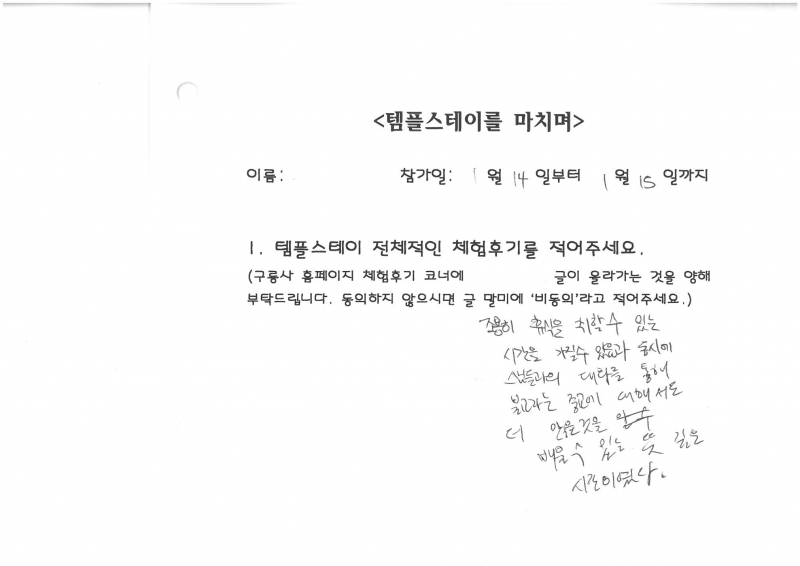 <템플스테이를 마치며>
이름: 참가일: 1월 14일부터 1월 15일까지
1. 템플스테이 전체적인 체험후기를 적어주세요.
(구룡사 홈페이지 체험후기 코너에 글이 올라가는 것을 양해
부탁드립니다. 동의하지 않으시면 글 말미에 '비동의'라고 적어주세요.)
조용히 휴식을 취할 수 있는
시간을 가질수 있음과 동시에
스님들과의 대화를 통해
불교라는 종교에 대해서도
더 많은것을
배울수 있는 뜻 깊은
시간이였다.